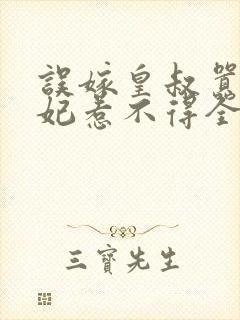 誤嫁皇叔
妃惹不得全
三寶先生